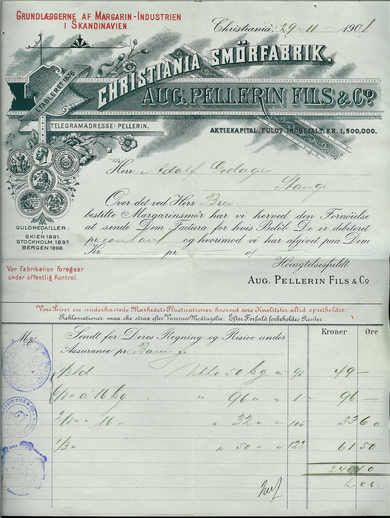 GRUNDLÆGGERNE AF MARGARIN-INDUSTRIEN
I SKANDINAVIEN.
Christiania 29-11- 190
ETABLERET 1876
CHRISTIANIA SMÖRFABRIK.
AUG. PELLERIN FILS & Co.
TELEGRAMADRESSE: PELLERIN.
AKTIEKAPITAL FULDT INDBETALT KR. 1,500,000.
Herr Adolf
Stange
GULDMEDAILLER.
SKIEN 1891.
STOCKHOLM 1897.
BERGEN 1898.
Over det ved Herr
bestilte Margarinsmør har vi herved den Fornøielse
at sende Dem Factura for hvis Beløb De er debiteret
pr. contant og hvorimod vi har afgivet paa Dem
Kr. pr. af
Høiagtelsesfuldt
AUG. PELLERIN FILS & Co
Vor fabrikation foregaar
under offentlig Kontrol.
Vore Priser ere underkastede Markedets Fluctuationer, hvorved vore Kvaliteter altid opretholdes.
Reklamationer maa ske straks efter Varernes Modtagelse. Efter Forfald forbeholdes Renter.
Mrz.
Sendt for Deres Regning og Risico under
Assurance pr.
Kroner Øre
50 kg a 49 -
16 kg 96 a 1 96 -
16 - 32 105 33 60
1/2 50 123 61 50
240 10